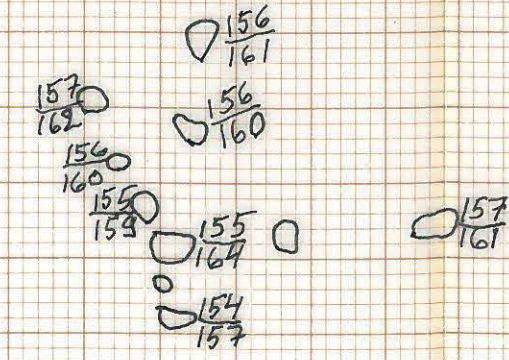 156
161
157
162
156
160
156
160
155
159
155
164
157
161
154
157